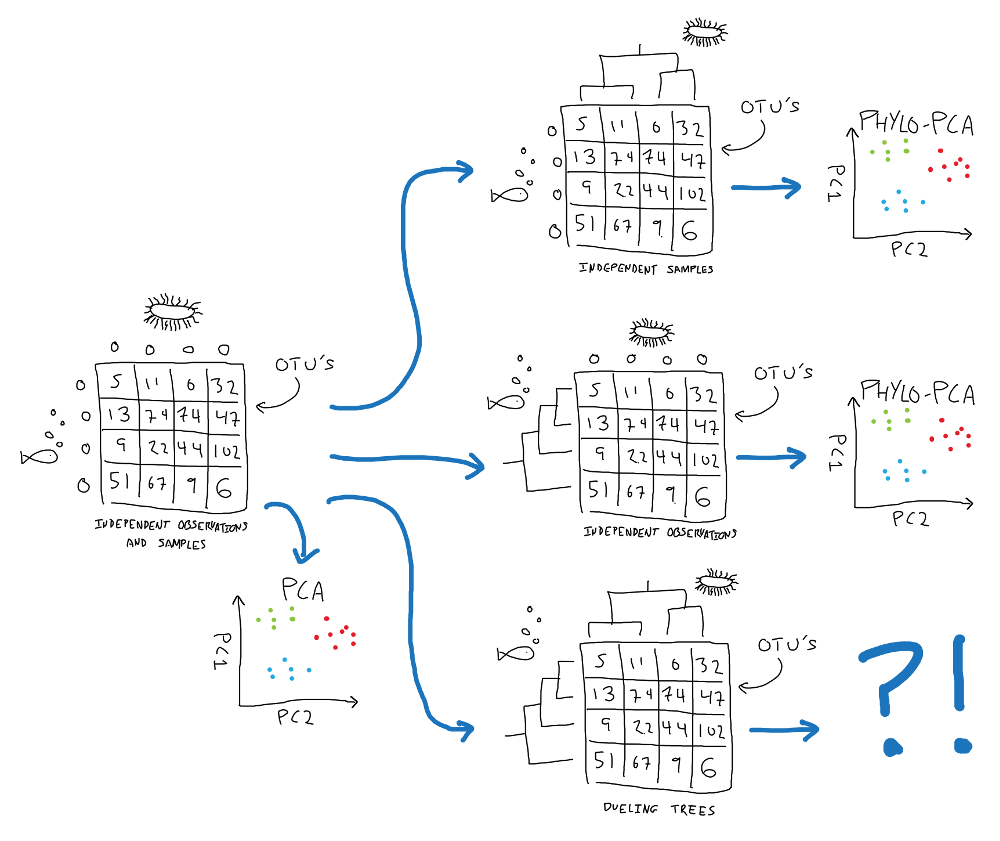 OTU'S
5 11 6 32
13 74 74 47
9 22 44 102
51 67 9 6
INDEPENDENT SAMPLES
PHYLO-PCA
PC1
PC2
OTU'S
5 11 6 32
13 74 74 47
9 22 44 102
51 67 9 6
INDEPENDENT OBSERVATIONS
AND SAMPLES
OTU'S
5 11 6 32
13 74 74 47
9 22 44 102
51 67 9 6
INDEPENDENT OBSERVATIONS
PHYLO-PCA
PC1
PC2
PCA
PC1
PC2
OTU'S
5 11 6 32
13 74 74 47
9 22 44 102
51 67 9 6
DUELING TREES
?!